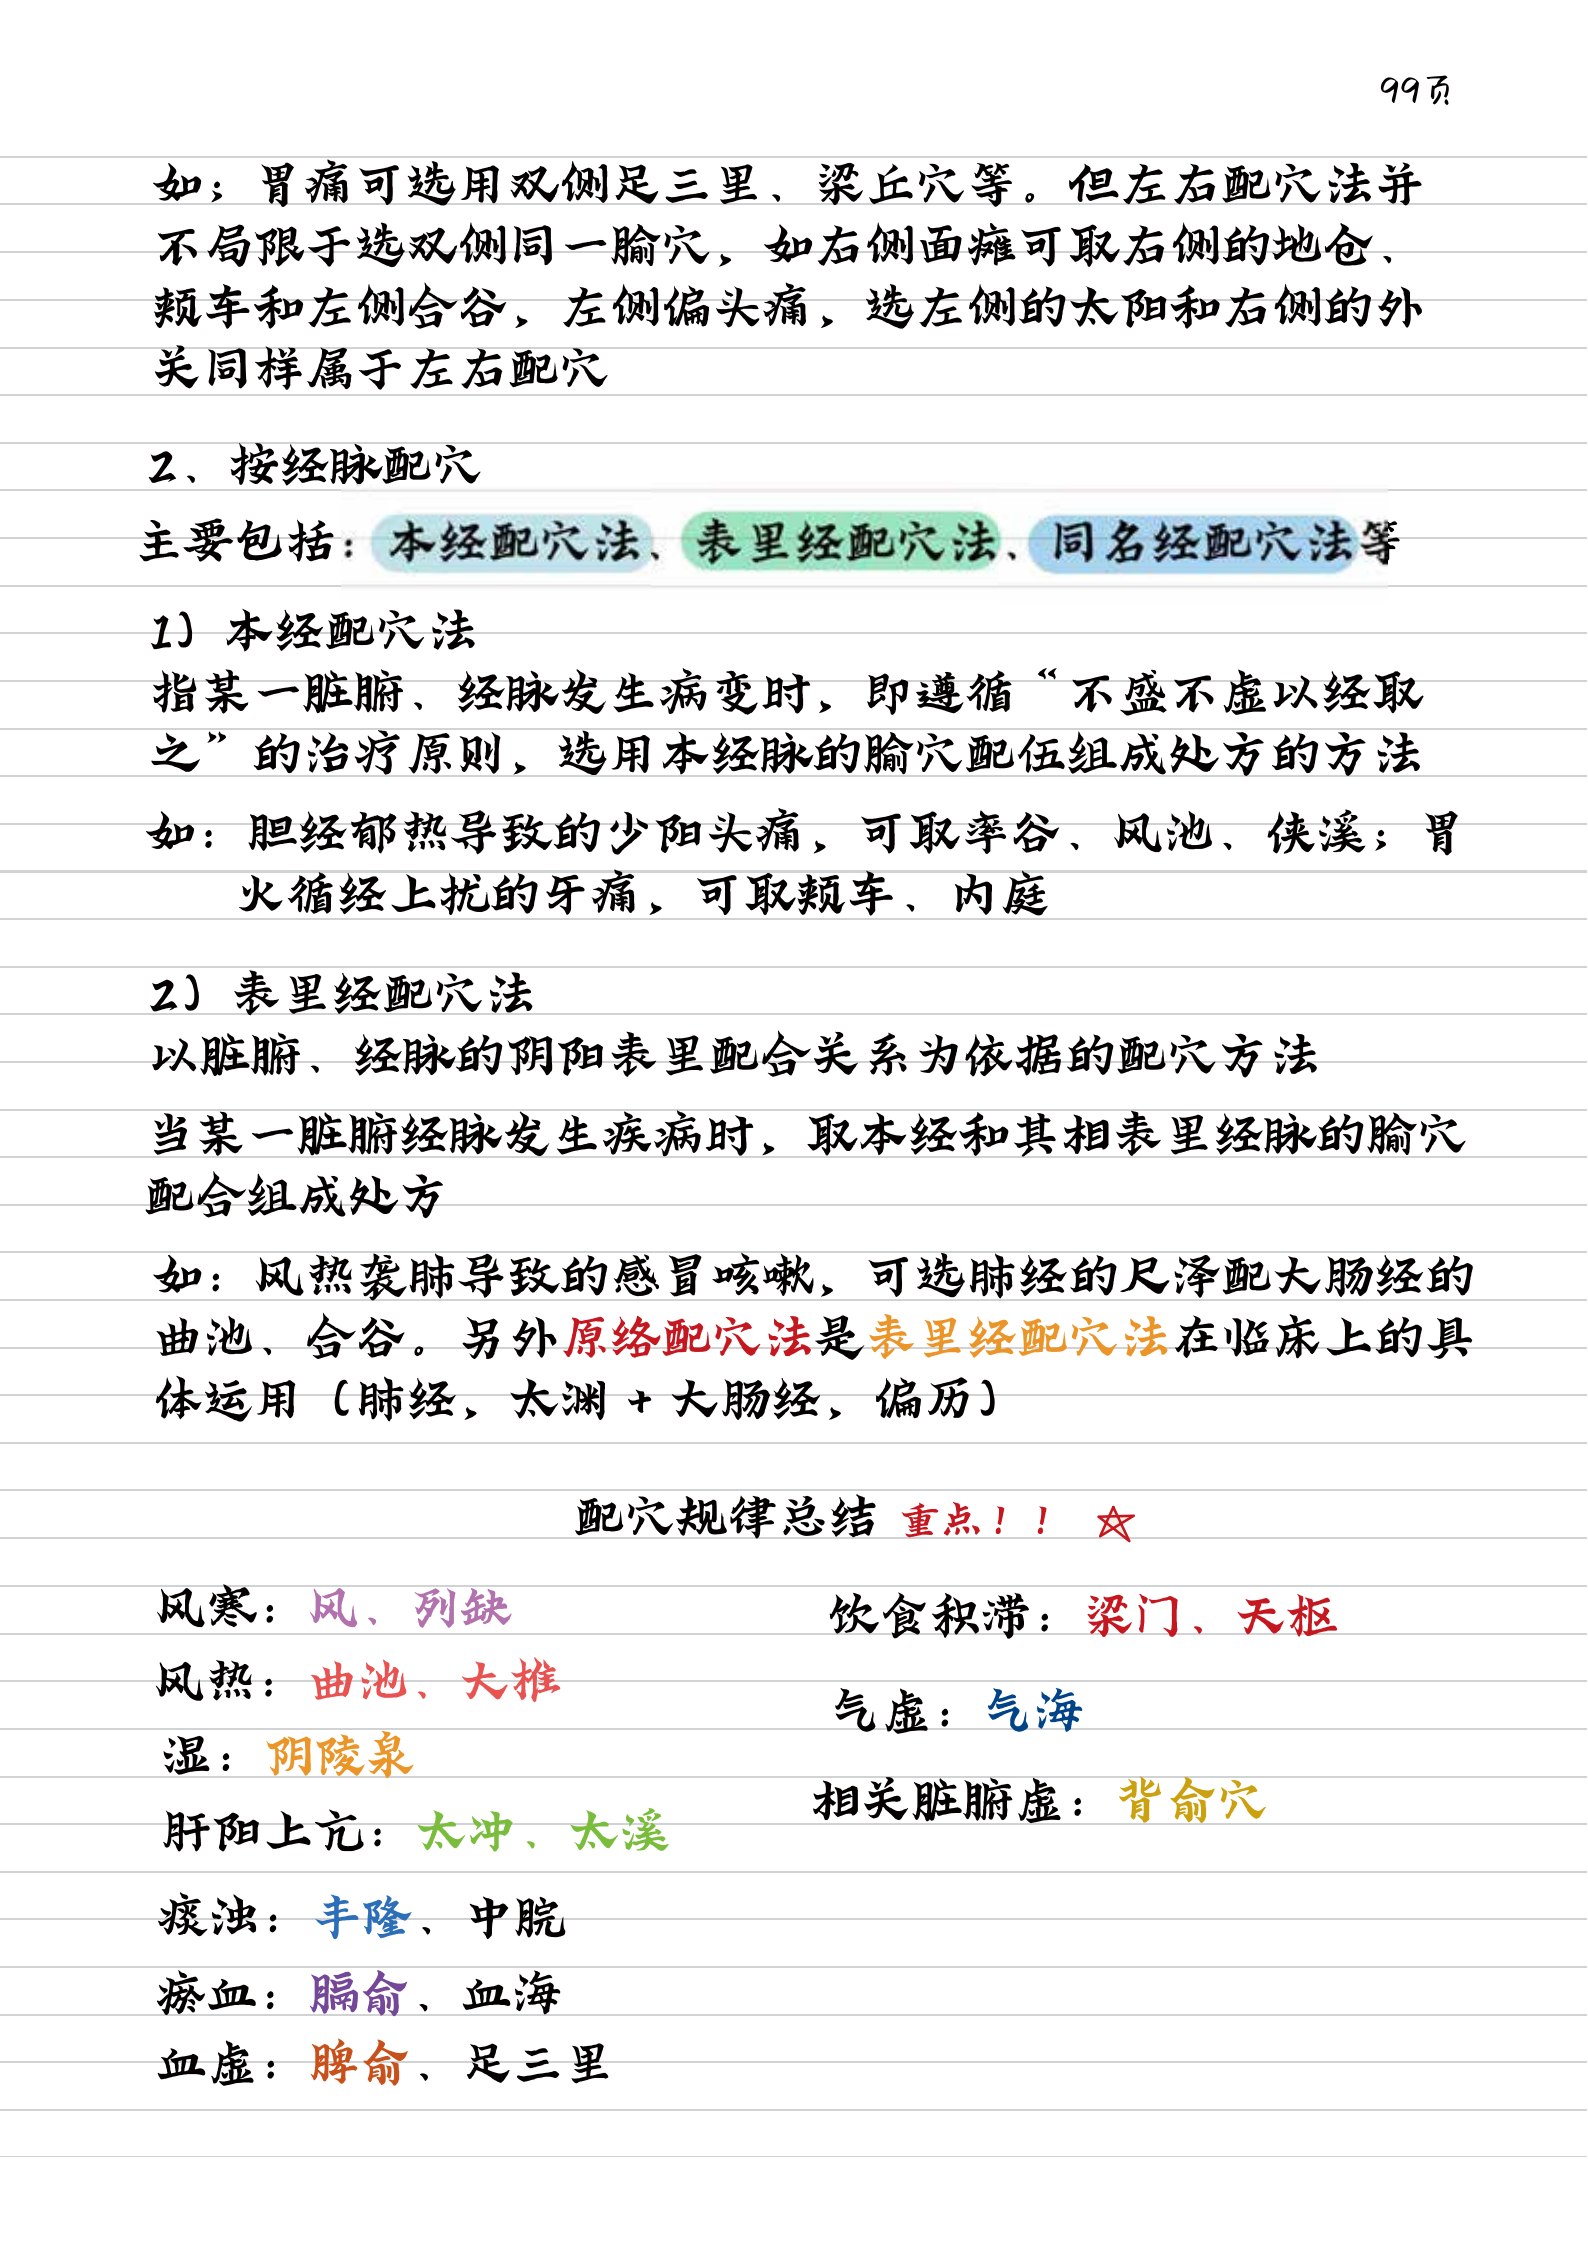 99页
如；胃痛可选用双侧足三里、梁丘穴等。但左右配穴法并
不局限于选双侧同一腧穴，如右侧面瘫可取右侧的地仓、
颊车和左侧合谷，左侧偏头痛，选左侧的太阳和右侧的外
关同样属于左右配穴
2、按经脉配穴
主要包括：本经配穴法、表里经配穴法、同名经配穴法等
1）本经配穴法
指某一脏腑、经脉发生病变时，即遵循“不盛不虚以经取
之”的治疗原则，选用本经脉的腧穴配伍组成处方的方法
如：胆经郁热导致的少阳头痛，可取率谷、风池、侠溪；胃
火循经上扰的牙痛，可取颊车、内庭
2）表里经配穴法
以脏腑、经脉的阴阳表里配合关系为依据的配穴方法
当某一脏腑经脉发生疾病时，取本经和其相表里经脉的腧穴
配合组成处方
如：风热袭肺导致的感冒咳嗽，可选肺经的尺泽配大肠经的
曲池、合谷。另外原络配穴法是表里经配穴法在临床上的具
体运用（肺经，太渊+大肠经，偏历）
配穴规律总结 重点！！ ☆
风寒：风、列缺
风热：曲池、大椎
湿：阴陵泉
肝阳上亢：太冲、太溪
痰浊：丰隆、中脘
瘀血：膈俞、血海
血虚：脾俞、足三里
饮食积滞：梁门、天枢
气虚：气海
相关脏腑虚：背俞穴